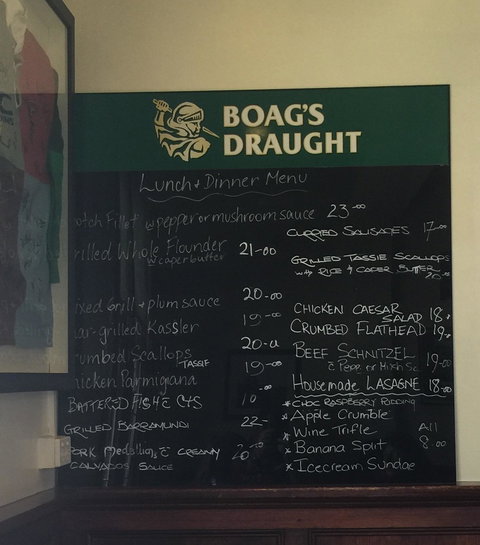 BOAG'S
DRAUGHT
Lunch + Dinner Menu
otch Fillet w pepper or mushroom sauce 23-00
rilled Whole Flounder 21-00
w caper butter
ixed Grill + plum sauce 20-00
ar-grilled Kassler 19-00
umbed Scallops 20-00
TASSIE 19-00
hicken Parmigiana -00
BATTERED FISH & CYS 10
GRILLED BARRAMUNDI 22-
PORK Medallions C CREAMY 20-00
CALVADOS SAUCE
CURRIED SAUSAGES 17-00
GRILLED TASSIE SCALLOPS
with RICE & CAPER BUTTER
20-00
CHICKEN CAESAR
SALAD 18-
CRUMBED FLATHEAD 19-
BEEF SCHNITZEL 19-00
C Pepp or Mush Sc
Housemade LASAGNE 18-00
* CHOC RASPBERRY PUDDING
* Apple Crumble
* Wine Trifle All
* Banana Split 8.00
* Icecream Sundae